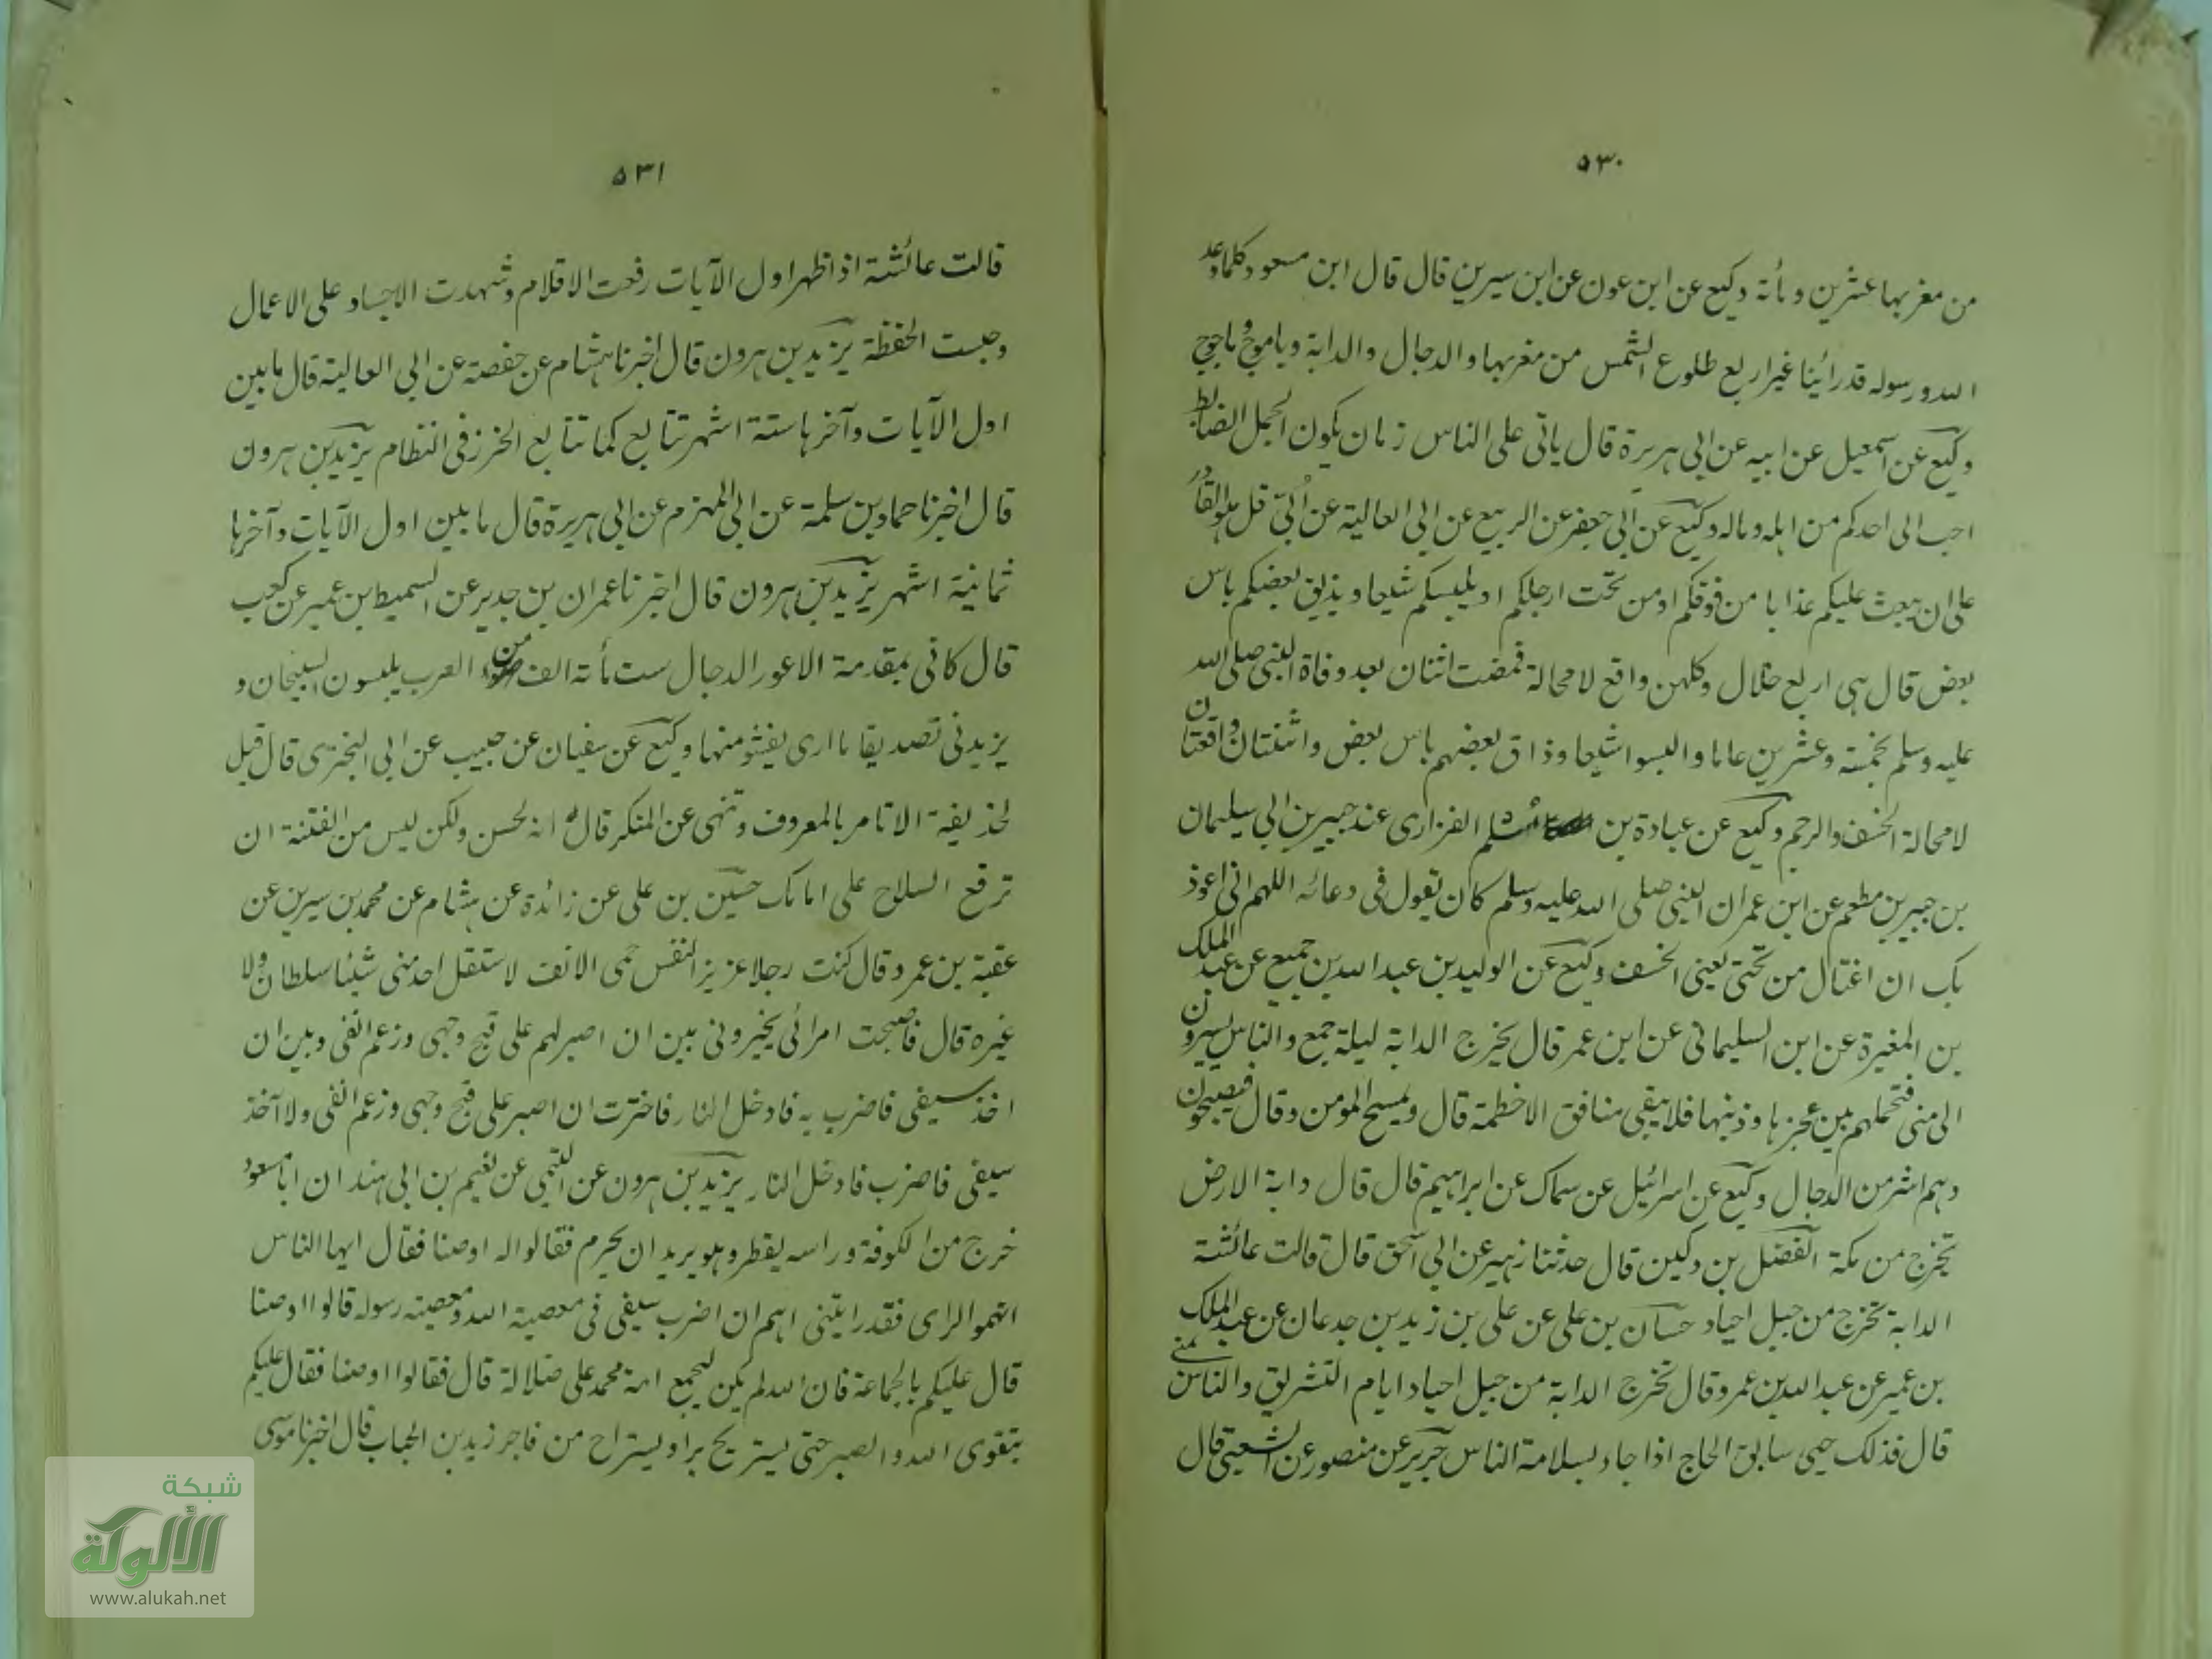 ٥٣٠
من مغربها عشرين ومأئة وكيع عن ابن عون عن ابن سيرين قال قال ابن مسعود كلما وعد
الله ورسوله قد رأينا غير اربع طلوع الشمس من مغربها والدجال والدابة وياجوج وماجوج
وكيع عن اسمعيل عن ابيه عن ابي هريرة قال ياتي على الناس زمان يكون الجمل الضابط
احب الى احدكم من اهله وماله وكيع عن ابي جعفر عن الربيع عن ابي العالية عن أبيّ قل هو القادر
على ان يبعث عليكم عذابا من فوقكم او من تحت ارجلكم او يلبسكم شيعا ويذيق بعضكم باس
بعض قال هي اربع خلال وكلهن واقع لا محالة فمضت اثنتان بعد وفاة النبي صلى الله
عليه وسلم بخمسة وعشرين عاما والبسوا شيعا وذاق بعضهم باس بعض واثنتان واقعتان
لا محالة الخسف والرجم وكيع عن عبادة بن مسلم الفزاري عند جبير بن ابي سليمان
بن جبير بن مطعم عن ابن عمر ان النبي صلى الله عليه وسلم كان يقول في دعائه اللهم اني اعوذ
بك ان اغتال من تحتي يعني الخسف وكيع عن الوليد بن عبد الله بن جميع عن عبد الملك
بن المغيرة عن ابن السليماني عن ابن عمر قال يخرج الدابة ليلة جمع والناس يسيرون
الى منى فتحملهم بين عجزها وذنبها فلا يبقى منافق الا خطمة قال ويمسح المومن وقال فيصبحون
وهم اشر من الدجال وكيع عن اسرائيل عن سماك عن ابراهيم قال قال دابة الارض
تخرج من مكة الفضل بن دكين قال حدثنا زهير عن ابي اسحق قال قالت عائشة
الدابة تخرج من جبل اجياد حسان بن علي عن علي بن زيد بن جدعان عن عبد الملك
بن عمير عن عبد الله بن عمرو قال تخرج الدابة من جبل اجياد ايام التشريق والناس بمنى
قال فذلك حيي سابق الحاج اذا جاء بسلامة الناس جرير عن منصور عن الشعبي قال
٥٣١
قالت عائشة اذا ظهر اول الآيات رفعت الاقلام وشهدت الاجساد على الاعمال
وحبست الحفظة يزيد بن هرون قال اخبرنا هشام عن حفصة عن ابي العالية قال ما بين
اول الآيات وآخرها ستة اشهر تتابع كما تتابع الخرز في النظام يزيد بن هرون
قال اخبرنا حماد بن سلمة عن ابي المهزم عن ابي هريرة قال ما بين اول الآيات وآخرها
ثمانية اشهر يزيد بن هرون قال اخبرنا عمران بن جدير عن السميط بن عمير عن كعب
قال كاني بمقدمة الاعور الدجال ست مأئة الف من العرب يلبسون السيجان و
يزيدني تصديقا ما ارى يفشو منها وكيع عن سفيان عن حبيب عن ابي البختري قال قيل
لحذيفة الا تامر بالمعروف وتنهى عن المنكر قال انه لحسن ولكن ليس من الفتنة ان
ترفع السلاح على امامك حسين بن علي عن زائدة عن هشام عن محمد بن سيرين عن
عقبة بن عمرو قال كنت رجلا عزيز النفس حمي الانف لا ستقل احد مني شيئا سلطان ولا
غيره قال فاصبحت امرائي يخيروني بين ان اصبر لهم على قبح وجهي وزعم انفي وبين ان
اخذ سيفي فاضرب به فادخل النار فاخترت ان اصبر على قبح وجهي وزعم انفي ولا آخذ
سيفي فاضرب فادخل النار يزيد بن هرون عن التيمي عن نعيم بن ابي هند ان ابا مسعود
خرج من الكوفة وراسه يقطر وهو يريد ان يحرم فقالوا له اوصنا فقال ايها الناس
اتهموا الراي فقد رايتني اهم ان اضرب سيفي في معصية الله ومعصية رسوله قالوا اوصنا
قال عليكم بالجماعة فان الله لم يكن ليجمع امة محمد على ضلالة قال فقالوا اوصنا فقال عليكم
بتقوى الله والصبر حتى يستريح برا ويستراح من فاجر زيد بن الحباب قال اخبرنا موسى
شبكة
الألوكة
www.alukah.net